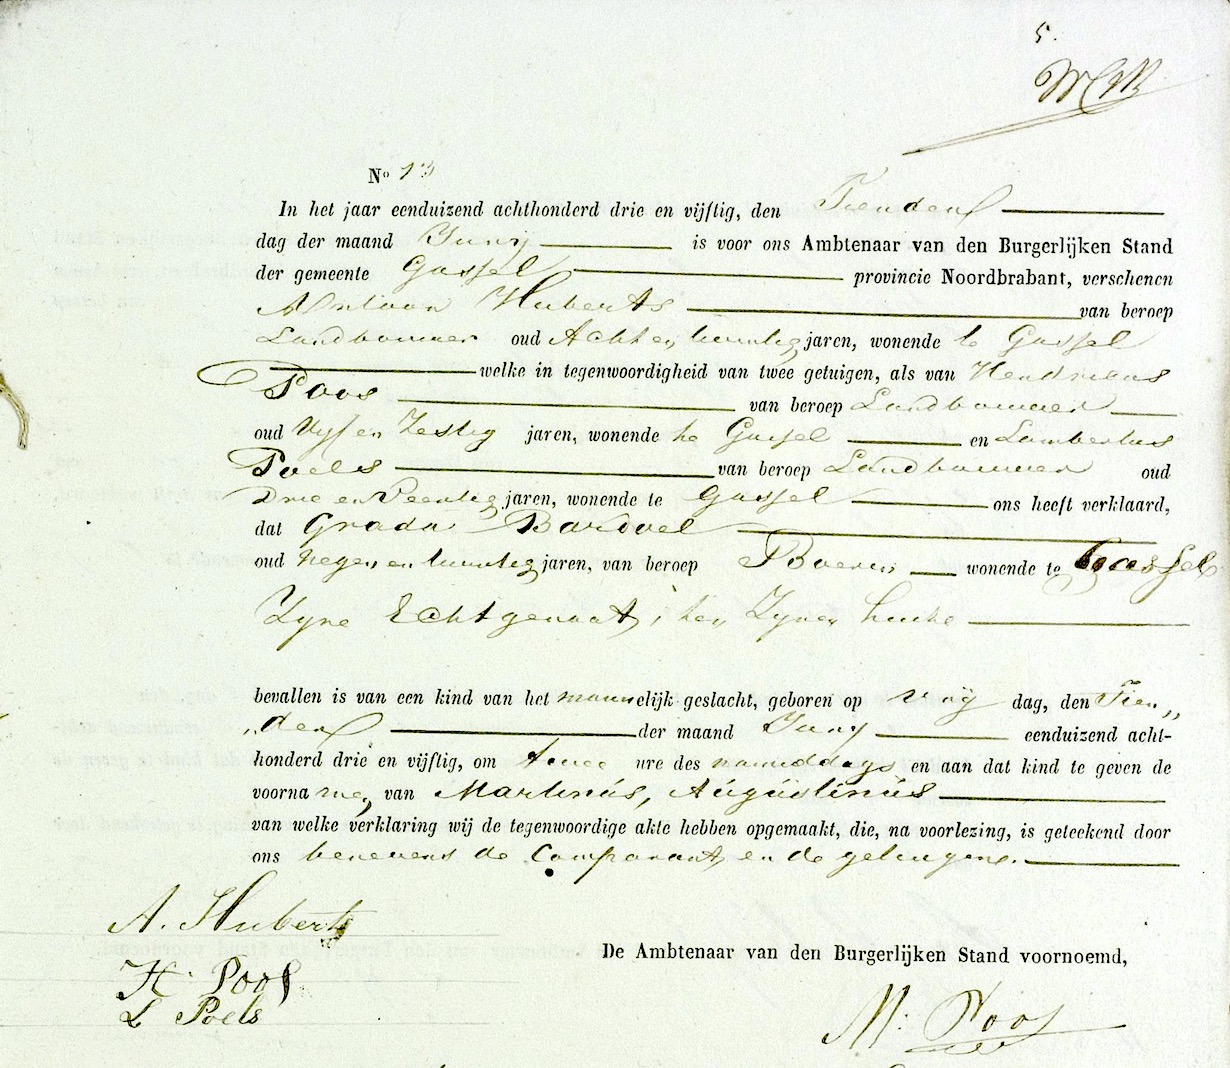 5.
No 13
In het jaar eenduizend achthonderd drie en vijftig, den Tienden
dag der maand Juny is voor ons Ambtenaar van den Burgerlijken Stand
der gemeente Gassel provincie Noordbrabant, verschenen
Antoon Huberts van beroep
Landbouwer oud Acht en twintig jaren, wonende te Gassel
welke in tegenwoordigheid van twee getuigen, als van Hendricus
Poos van beroep Landbouwer
oud Vyf en Zestig jaren, wonende te Gassel en Lambertus
Poels van beroep Landbouwer oud
Drie en Veertig jaren, wonende te Gassel ons heeft verklaard,
dat Grada Bardoel
oud negen en twintig jaren, van beroep Boerin wonende te Gassel
Zyne Echtgenoot, ten Zynen huize
bevallen is van een kind van het mannelijk geslacht, geboren op vrij dag, den Tien„
„den der maand Juny eenduizend acht-
honderd drie en vijftig, om twee ure des namiddags en aan dat kind te geven de
voornamen, van Martinús, Aúgústinús
van welke verklaring wij de tegenwoordige akte hebben opgemaakt, die, na voorlezing, is geteekend door
ons benevens de Comparant, en de getuigene.
A. Huberts
De Ambtenaar van den Burgerlijken Stand voornoemd,
H. Poos
L Poels
M: Poos